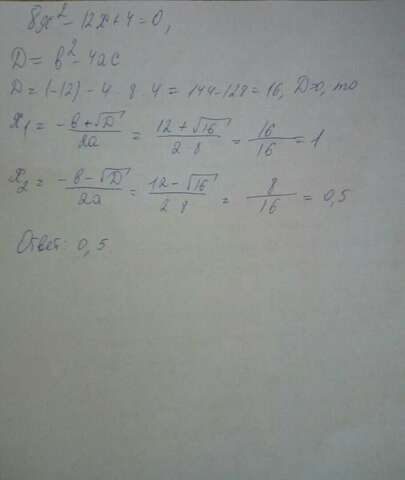 8x² - 12x + 4 = 0,
D = b² - 4ac
D = (-12) - 4 · 8 · 4 = 144 - 128 = 16, D>0, то
x₁ = \frac{-b+√D}{2a} = \frac{12+√16}{2·8} = \frac{16}{16} = 1
x₂ = \frac{-b-√D}{2a} = \frac{12-√16}{2·8} = \frac{8}{16} = 0,5
Ответ: 0,5